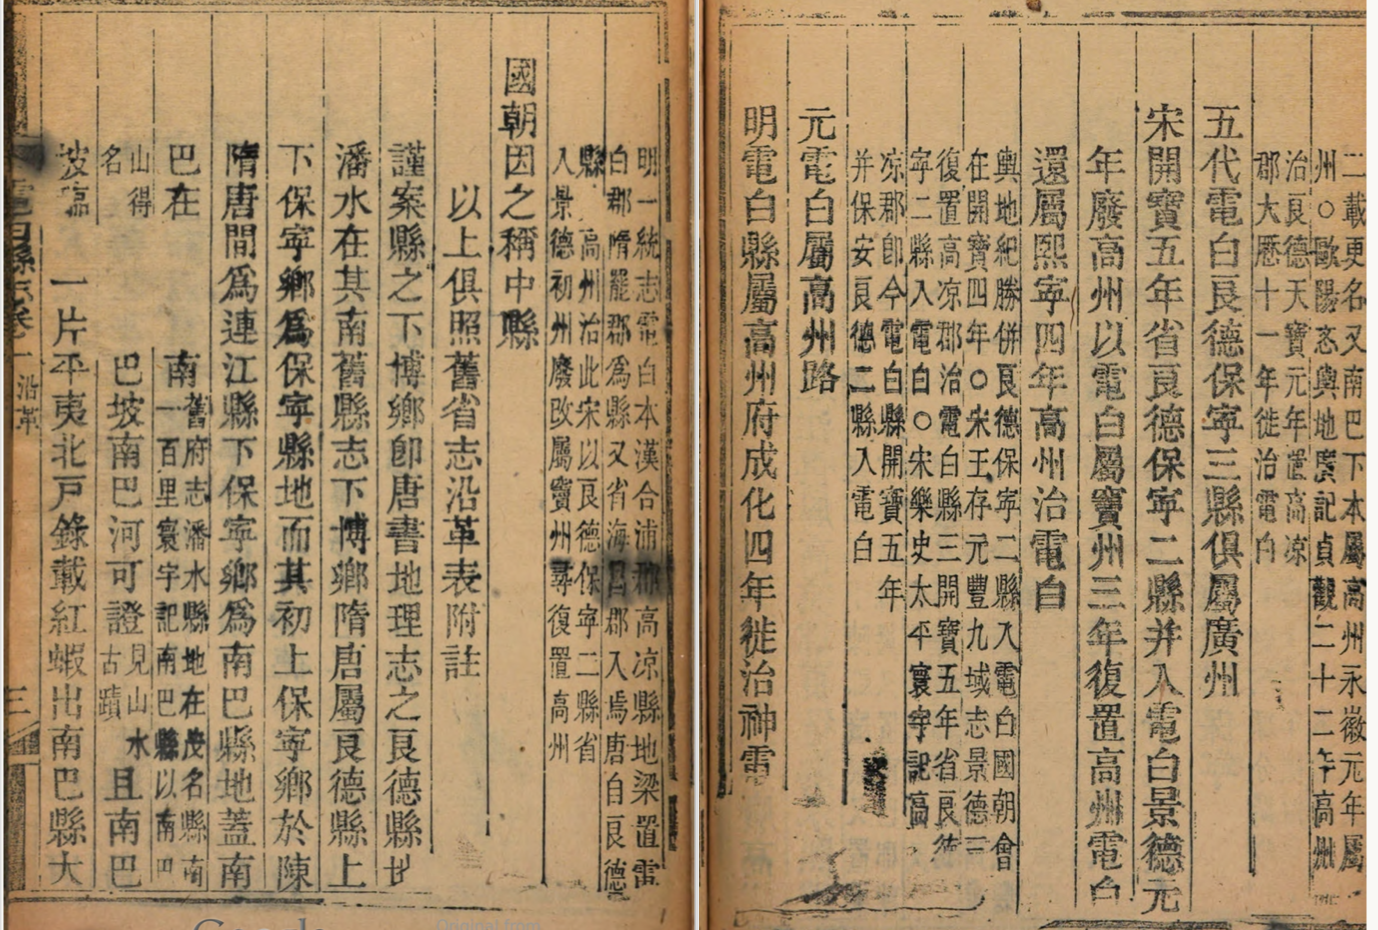 二載更名又南巴下本屬高州永徽元年屬
州○歐陽忞輿地廣記貞觀二十二年高州
治良德天寶元年置高凉
郡大厯十一年徙治電白
五代電白良德保寜三縣俱屬廣州
宋開寶五年省良德保寜二縣并入電白景德元
年廢高州以電白屬竇州三年復置高州電白
還屬熙寜四年高州治電白
輿地紀勝併良德保寜二縣入電白國朝會
在開寶四年○宋王存元豐九域志景德三
復置高凉郡治電白縣三開寶五年省良德
寜二縣入電白○宋樂史太平寰宇記高
凉郡卽今電白縣開寶五年
并保安良德二縣入電白
元電白屬高州路
明電白縣屬高州府成化四年徙治神電
明一統志電白本漢合浦郡高凉縣地梁置電
白郡隋罷郡爲縣又省海昌郡入焉唐自良德
縣 高州治此宋以良德保寜二縣省
入景德初州廢改屬竇州尋復置高州
國朝因之稱中縣
以上俱照舊省志沿革表附註
謹案縣之下博鄉卽唐書地理志之良德縣地
潘水在其南舊縣志下博鄉隋唐屬良德縣上
下保寜鄉爲保寜縣地而其初上保寜鄉於陳
隋唐間爲連江縣下保寜鄉爲南巴縣地蓋南
巴在 南
舊府志潘水縣地在茂名縣南
一百里寰宇記南巴縣以南巴
山得
名
巴坡南巴河可證
見山水
古蹟
且南巴
坡 一片平夷北戸錄載紅蝦出南巴縣大
電白縣志卷一 沿革 三